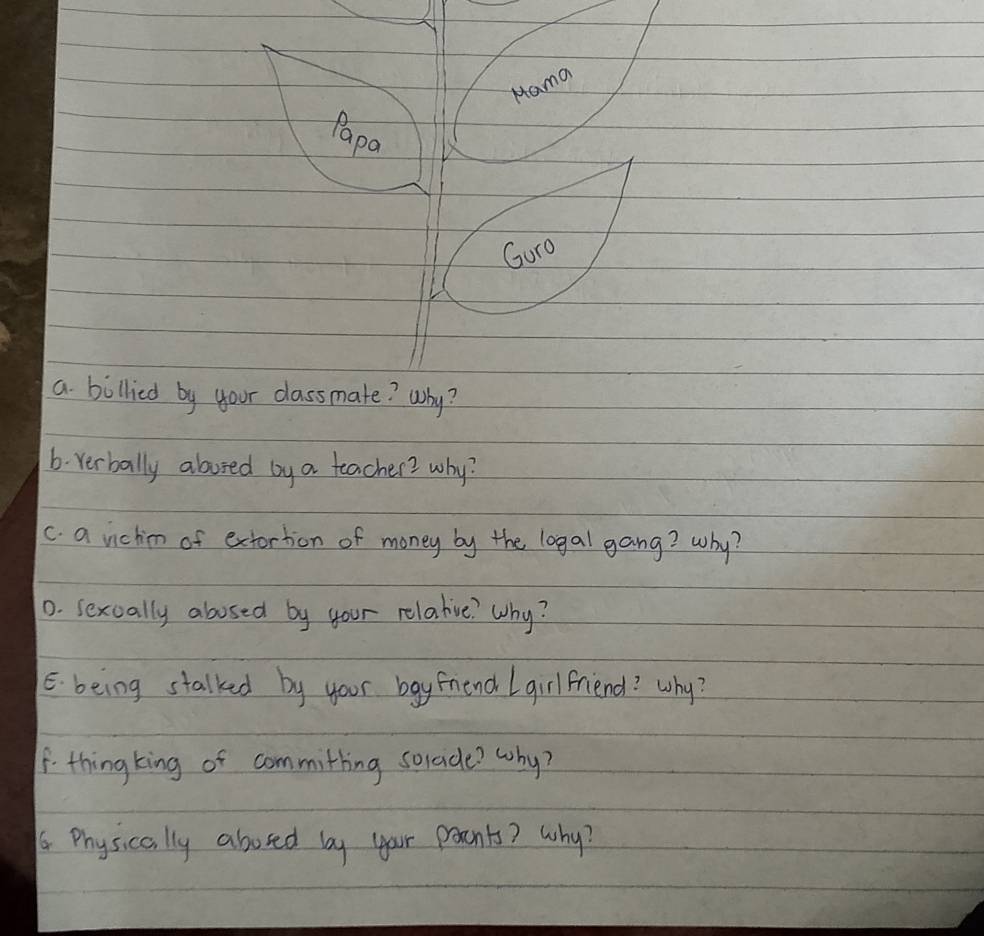 Mama
Papa
Guro
a. bullied by your classmate? why?
b. verbally abused by a teacher? why?
c. a victim of extortion of money by the logal gang? why?
D. sexually abused by your relative? why?
E. being stalked by your boyfriend / girlfriend? why?
f. thingking of committing soicide? why?
G Physically abused by your parents? why?